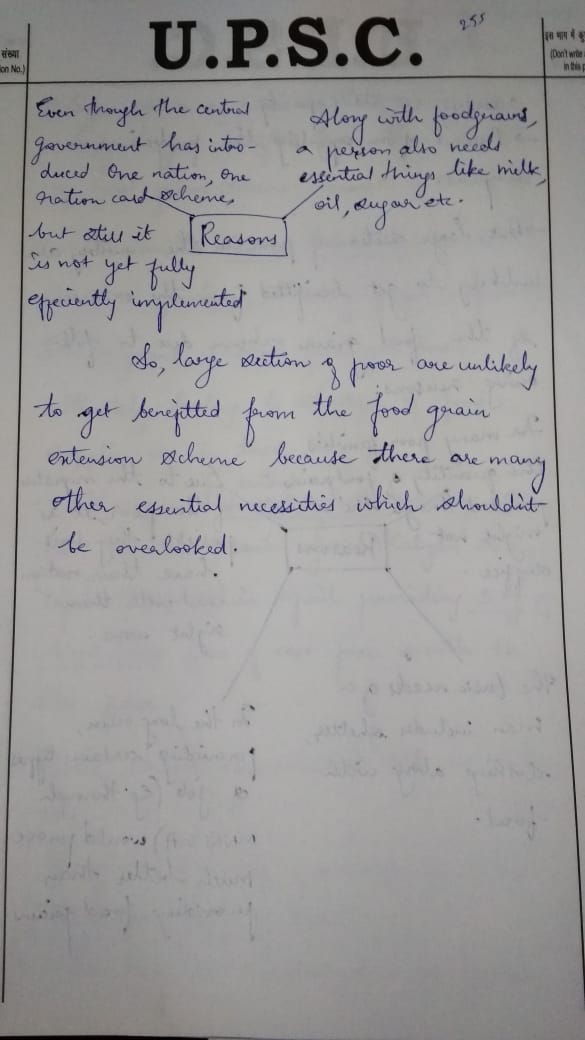 255
U.P.S.C.
संख्या
ion No.)
इस भाग में कु
(Don't write
in this p
Even though the central
government has intro-
duced One nation, One
ration card scheme,
but still it
is not yet fully
effeciently implemented
Along with foodgrains,
a person also needs
essential things like milk,
oil, sugar etc.
Reasons
So, large section of poor are unlikely
to get benefitted from the food grain
extension scheme because there are many
other essential necessities which shouldn't
be overlooked.